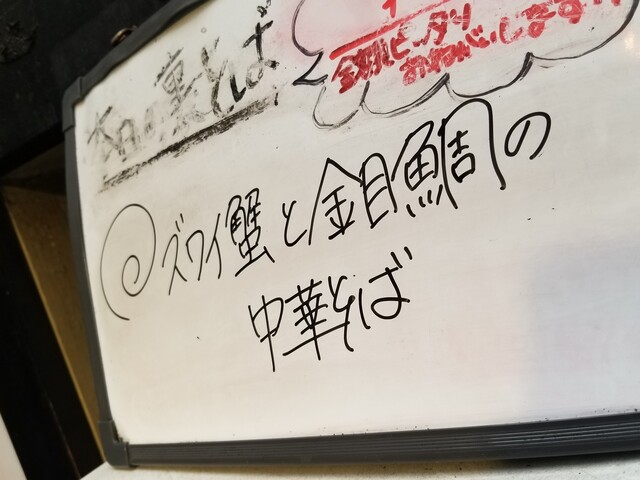 本日の裏そば
金額ピッタリ
おねがいします!!
@ズワイ蟹と金目鯛の
中華そば